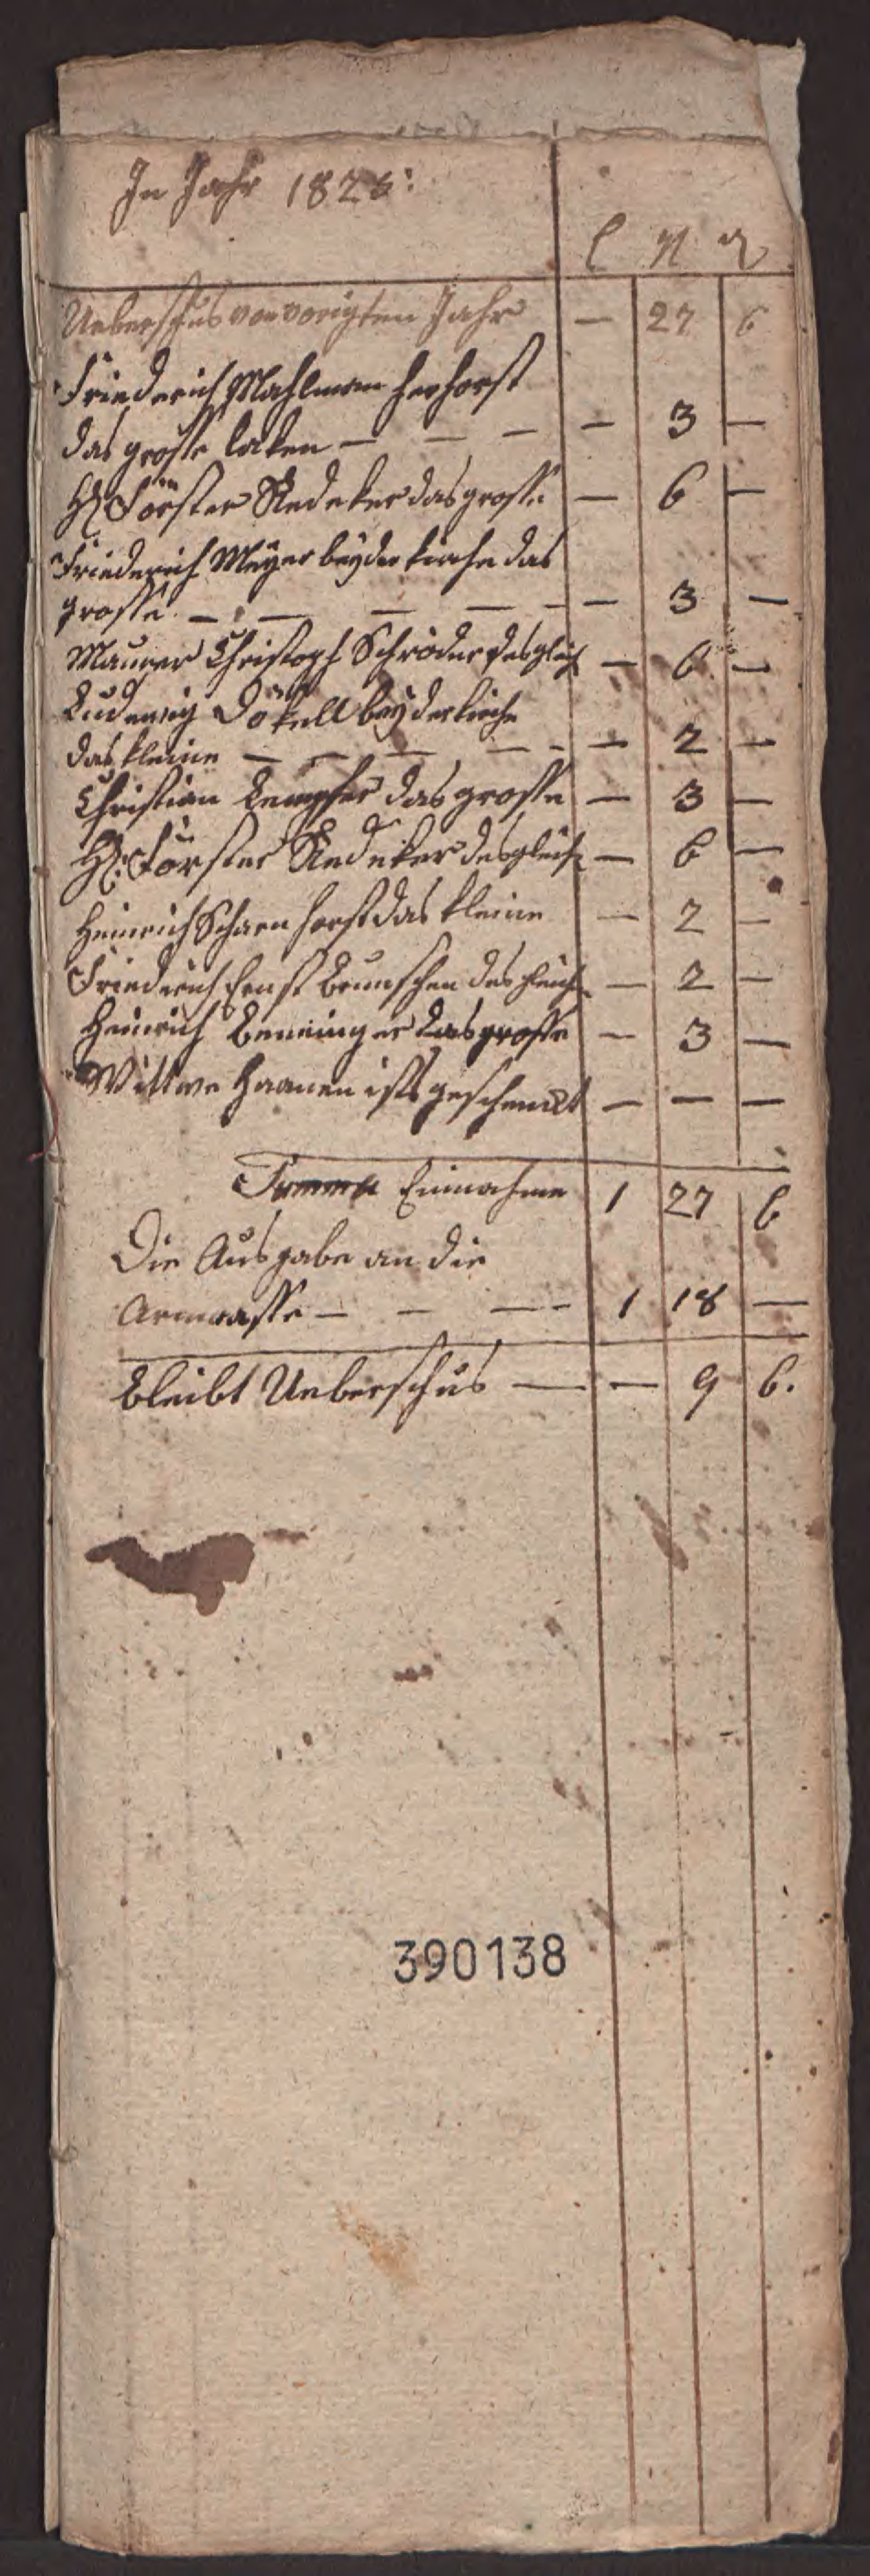 In Jahr 1826:
Ueberschus von vorigten Jahr — 27 6
Friederich Mahlman Herhorst
das grosse laken — — — — 3 —
H Förster Redeker das grosse — 6 —
Friederich Meyer bey der kirche das
grosse — — — — — — 3 —
Maurer Christoph Schröder desgleich — 6 —
Ludewig Dökell bey der kirche
das kleine — — — — — — 2 —
Christian Kempfer das grosse — 3 —
H: Förster Redeker desgleich — 6 —
Heinrich Scharnhorst das kleine — 2 —
Friedrich Ernst Brunschen desgleich — 2 —
Heinrich Benninger das grosse — 3 —
Wittwe Haanen ists geschenckt — — —
Summa Einnahme 1 27 6
Die Ausgabe an die
Armcasse — — — 1 18 —
Bleibt Ueberschus — — 9 6.
390138